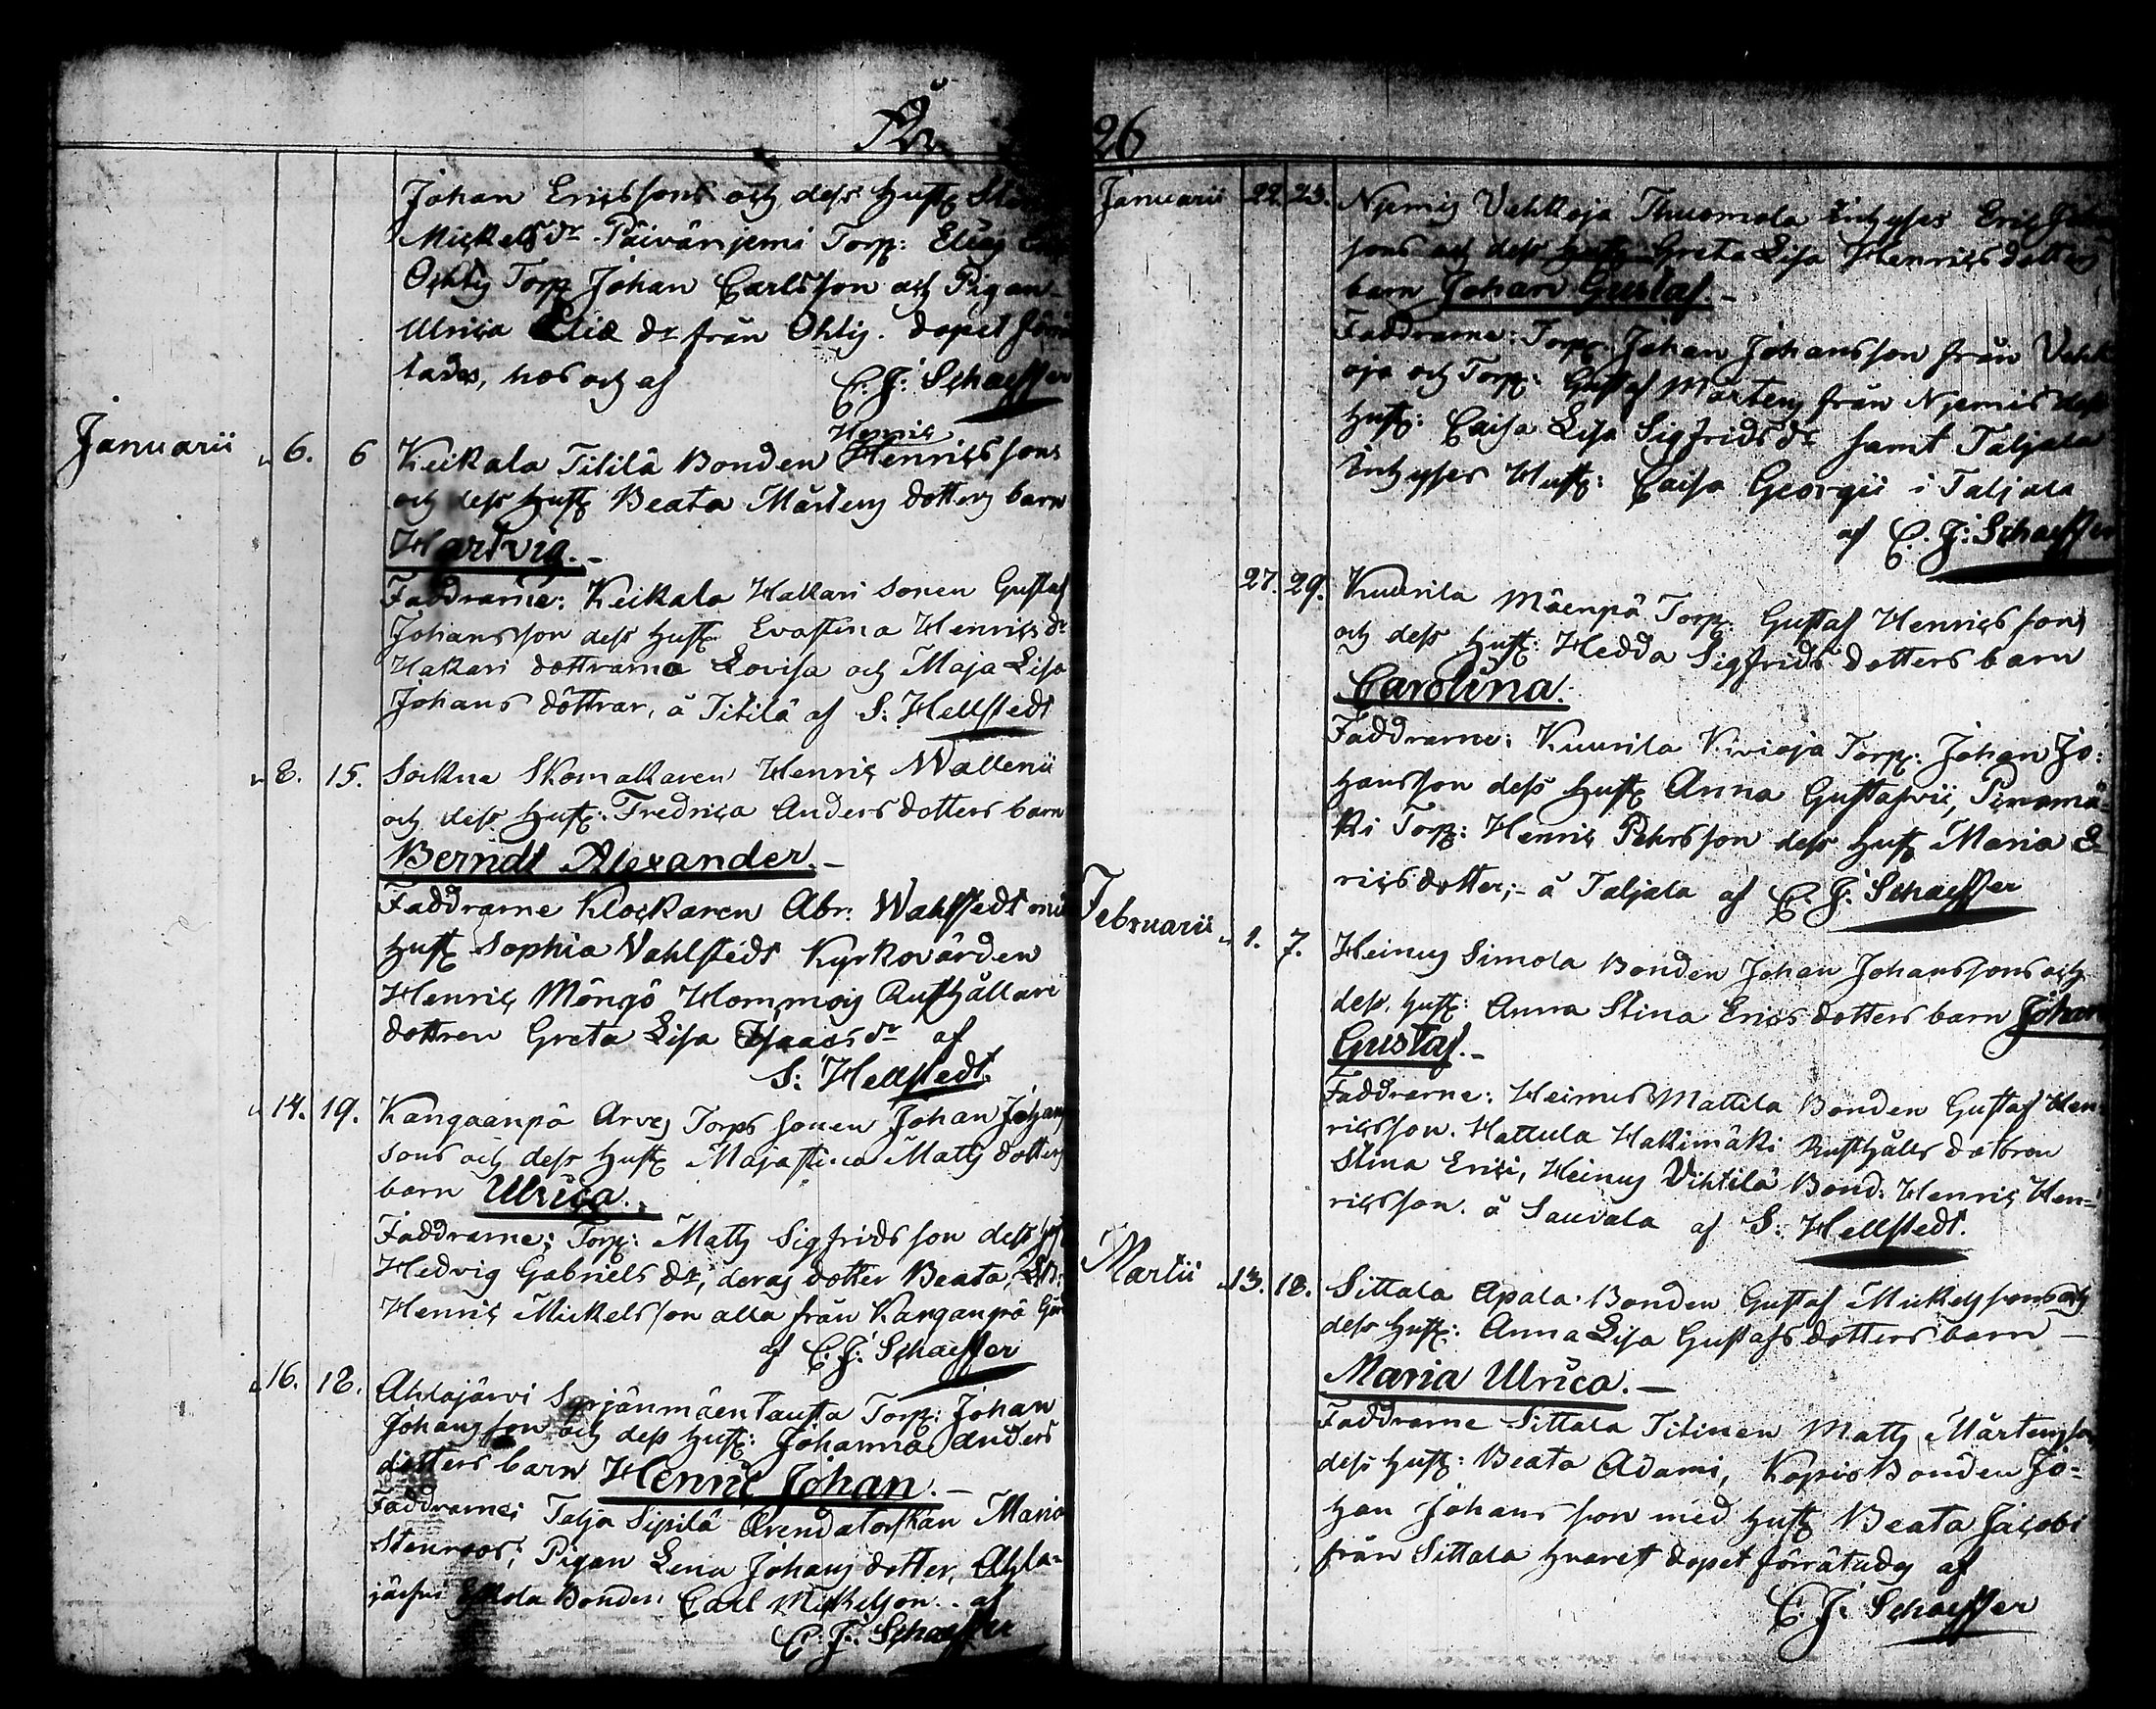 År
26
Johan Ericssons och dess Hust
Mickels dr Päivänjemi Torp: Elias
Torp Johan Carlsson och Pigan
Ulrica Elia dr från Ohtis. dopet förrä
tades, hos och af C. J: Schæffer
Henric
Januarii 6. 6 Keikala Titilä Bonden Henricssons
och dess Hust Beata Mårtens dotters barn
Hartvig.-
Faddrarne: Keikala Hakari sonen Gustaf
Johansson dess Hust Evastina Henrics dr
Hakari döttrarna Lovisa och Maja Lisa
Johans döttrar, å Titilä af S: Hellstedt
8. 15. Sockne Skomakaren Henric Wallenii
och dess Hust. Fredrica Anders dotters barn
Berndt Alexander.-
Faddrarne Klockaren Abr: Wahlstedt
Hust Sophia Wahlstedt Kyrkovärden
Henric Mångs Hommois Rusthållare
dottren Greta Lisa Isaacs dr af
S: Hellstedt.
14. 19. Kangaanpä Arvs Torps sonen Johan Johans
sons och dess Hust Majastina Matts dotters
barn Ulrica.-
Faddrarne: Torp: Matts Sigfridsson dess
Hedvig Gabriels dr, deras dotter Beata,
Henric Mickelsson alla från Kanganpä
af C. J: Schæffer
16. 18. Ahlajärvi Syrjänmäentausta Torp: Johan
Johansson och dess Hust: Johanna Anders
dotters barn Henric Johan.-
Faddrarne: Talja Sipilä Arendatorskan Maria
Stenroos, Pigan Lena Johans dotter, Ahla-
järfvi Bonden Carl Mickelson.. af
C. J: Schæffer
Januarii 22. 23. Njemis Vehkoja Thuomola Inhyses Eric Johan
sons och dess Hust: Greta Lisa Henricsdotters
barn Johan Gustaf.-
Faddrarne: Torp: Johan Johansson från Vehk
oja och Torp: Gustaf Mårtens från Njemis dess
Hust: Caisa Lisa Sigfrids dr samt Taljala
Inhyses Hust: Caisa Georgii i Taljala
af C. J: Schæffer
27. 29. Kuurila Mäenpä Torp: Gustaf Henricssons
och dess Hust: Hedda Sigfrids dotters barn
Carolina.
Faddrarne: Kuurila Kivioja Torp: Johan Jo:
hansson dess Hust Anna Gustafvii,
ki Torp: Henric Pehrsson dess Hust Maria E-
ricsdotter;- å Taljala af C. J: Schæffer
Februarii 1. 7. Heinus Simola Bonden Johan Johanssons och
dess Hust: Anna Stina Erics dotters barn Johan
Gustaf.-
Faddrarne: Heinus Mattila Bonden Gustaf Hen-
ricsson. Hattula Hakimäki Rusthålls dottren
Stina Erici, Heinus Vihtilä Bond: Henric Hen-
ricsson. å Sauvala af S: Hellstedt.
Martii 13. 18. Sittala Apala Bonden Gustaf Mickelssons och
dess Hust: Anna Lisa Gustafs dotters barn -
Maria Ulrica.-
Faddrarne Sittala Titinen Matts Mårtensson
dess Hust: Beata Adami, Kopio Bonden Jo-
han Johansson med Hust Beata Jacobi
från Sittala hvarest dopet förrätades af
C. J: Schæffer